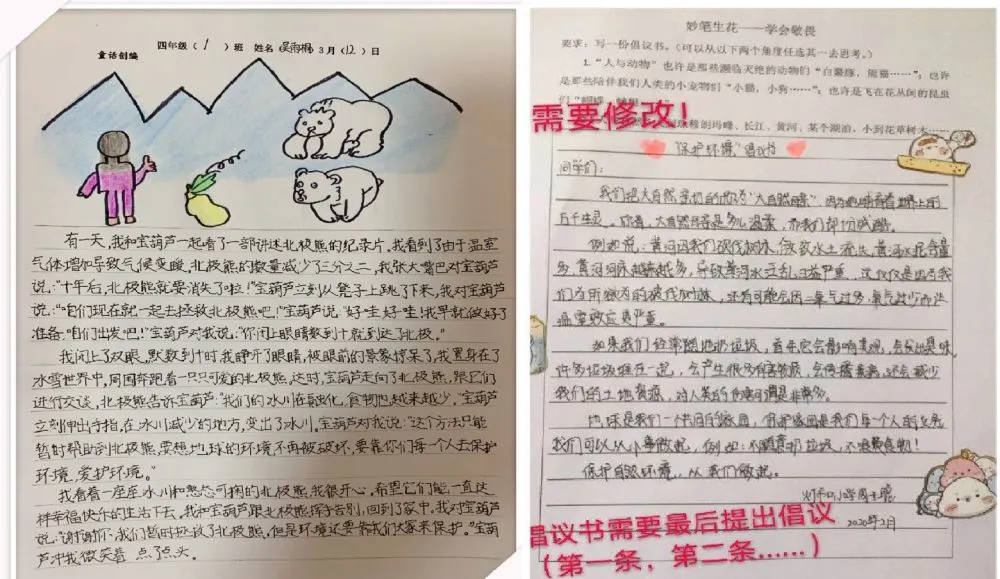 童话创编 四年级（1）班 姓名（吴雨桐）3月（12）日
有一天，我和宝葫芦一起看了一部讲述北极熊的纪录片。我看到了由于温室
气体增加导致气候变暖，北极熊的数量减少了三分之二，我张大嘴巴对宝葫芦
说：“十年后，北极熊就要消失了啦！”宝葫芦立刻从凳子上跳了下来，我对宝葫芦
说：“咱们现在就一起去拯救北极熊吧！”宝葫芦说，“好哇好哇！我早就做好了
准备，咱们出发吧！”宝葫芦对我说：“你闭上眼睛数到十就到达了北极。”
我闭上了双眼，默数到十时，我睁开了眼睛，被眼前的景象惊呆了，我置身在了
冰雪世界中，周围奔跑着一只只可爱的北极熊。这时，宝葫芦走向了北极熊，跟它们
进行交谈，北极熊告诉宝葫芦：“我们的冰川在融化，食物也越来越少。”宝葫芦
立刻伸出手指，在冰川减少的地方，变出了冰川。宝葫芦对我说：“这个方法只能
暂时帮助到北极熊，要想地球的环境不再被破坏，要靠你们每个人去保护
环境，爱护环境。”
我看着一座座冰川和憨态可掬的北极熊，我很开心，希望它们能一直这
样幸福快乐的生活下去，我和宝葫芦跟北极熊挥手告别，回到了家中，我对宝葫芦
说：“谢谢你，我们暂时拯救了北极熊，但是环境还要靠我们大家来保护。”宝葫
芦冲我微笑着，点了点头。
妙笔生花——学会敬畏
要求：写一份倡议书。（可以从以下两个角度任选其一去思考。）
1.“人与动物”也许是那些濒临灭绝的动物们“白鳘豚，熊猫……”；也许
是那些陪伴我们人类的小宠物们“小猫，小狗……”；也许是飞在花丛间的昆虫
需要修改！
珠穆朗玛峰、长江、黄河、某个湖泊，小到花草树木……
“保护环境”倡议书
同学们：
我们把大自然亲切的称为“大自然母亲”，因为她哺育着世界上的
万千生灵。
例如说，黄河因我们砍伐树木，导致水土流失，黄河水泥含量
多，黄河河床越来越多，导致黄河水泛乱
温室效应更严重。
如果我们经常随地扔垃圾，首先它会影响美观，
许多垃圾堆在一起，会产生很多有害物质，会传播病毒，还会减少
我们的土地资源，对人类的伤害可谓是非常多。
地球是我们一共同的家园，保护家园是我们每一个人的义务
我们可以从小事做起，例如：不随意扔垃圾，不浪费食物！
保护自然环境，从我们做起。
2020年2月
倡议书需要最后提出倡议
（第一条，第二条……）